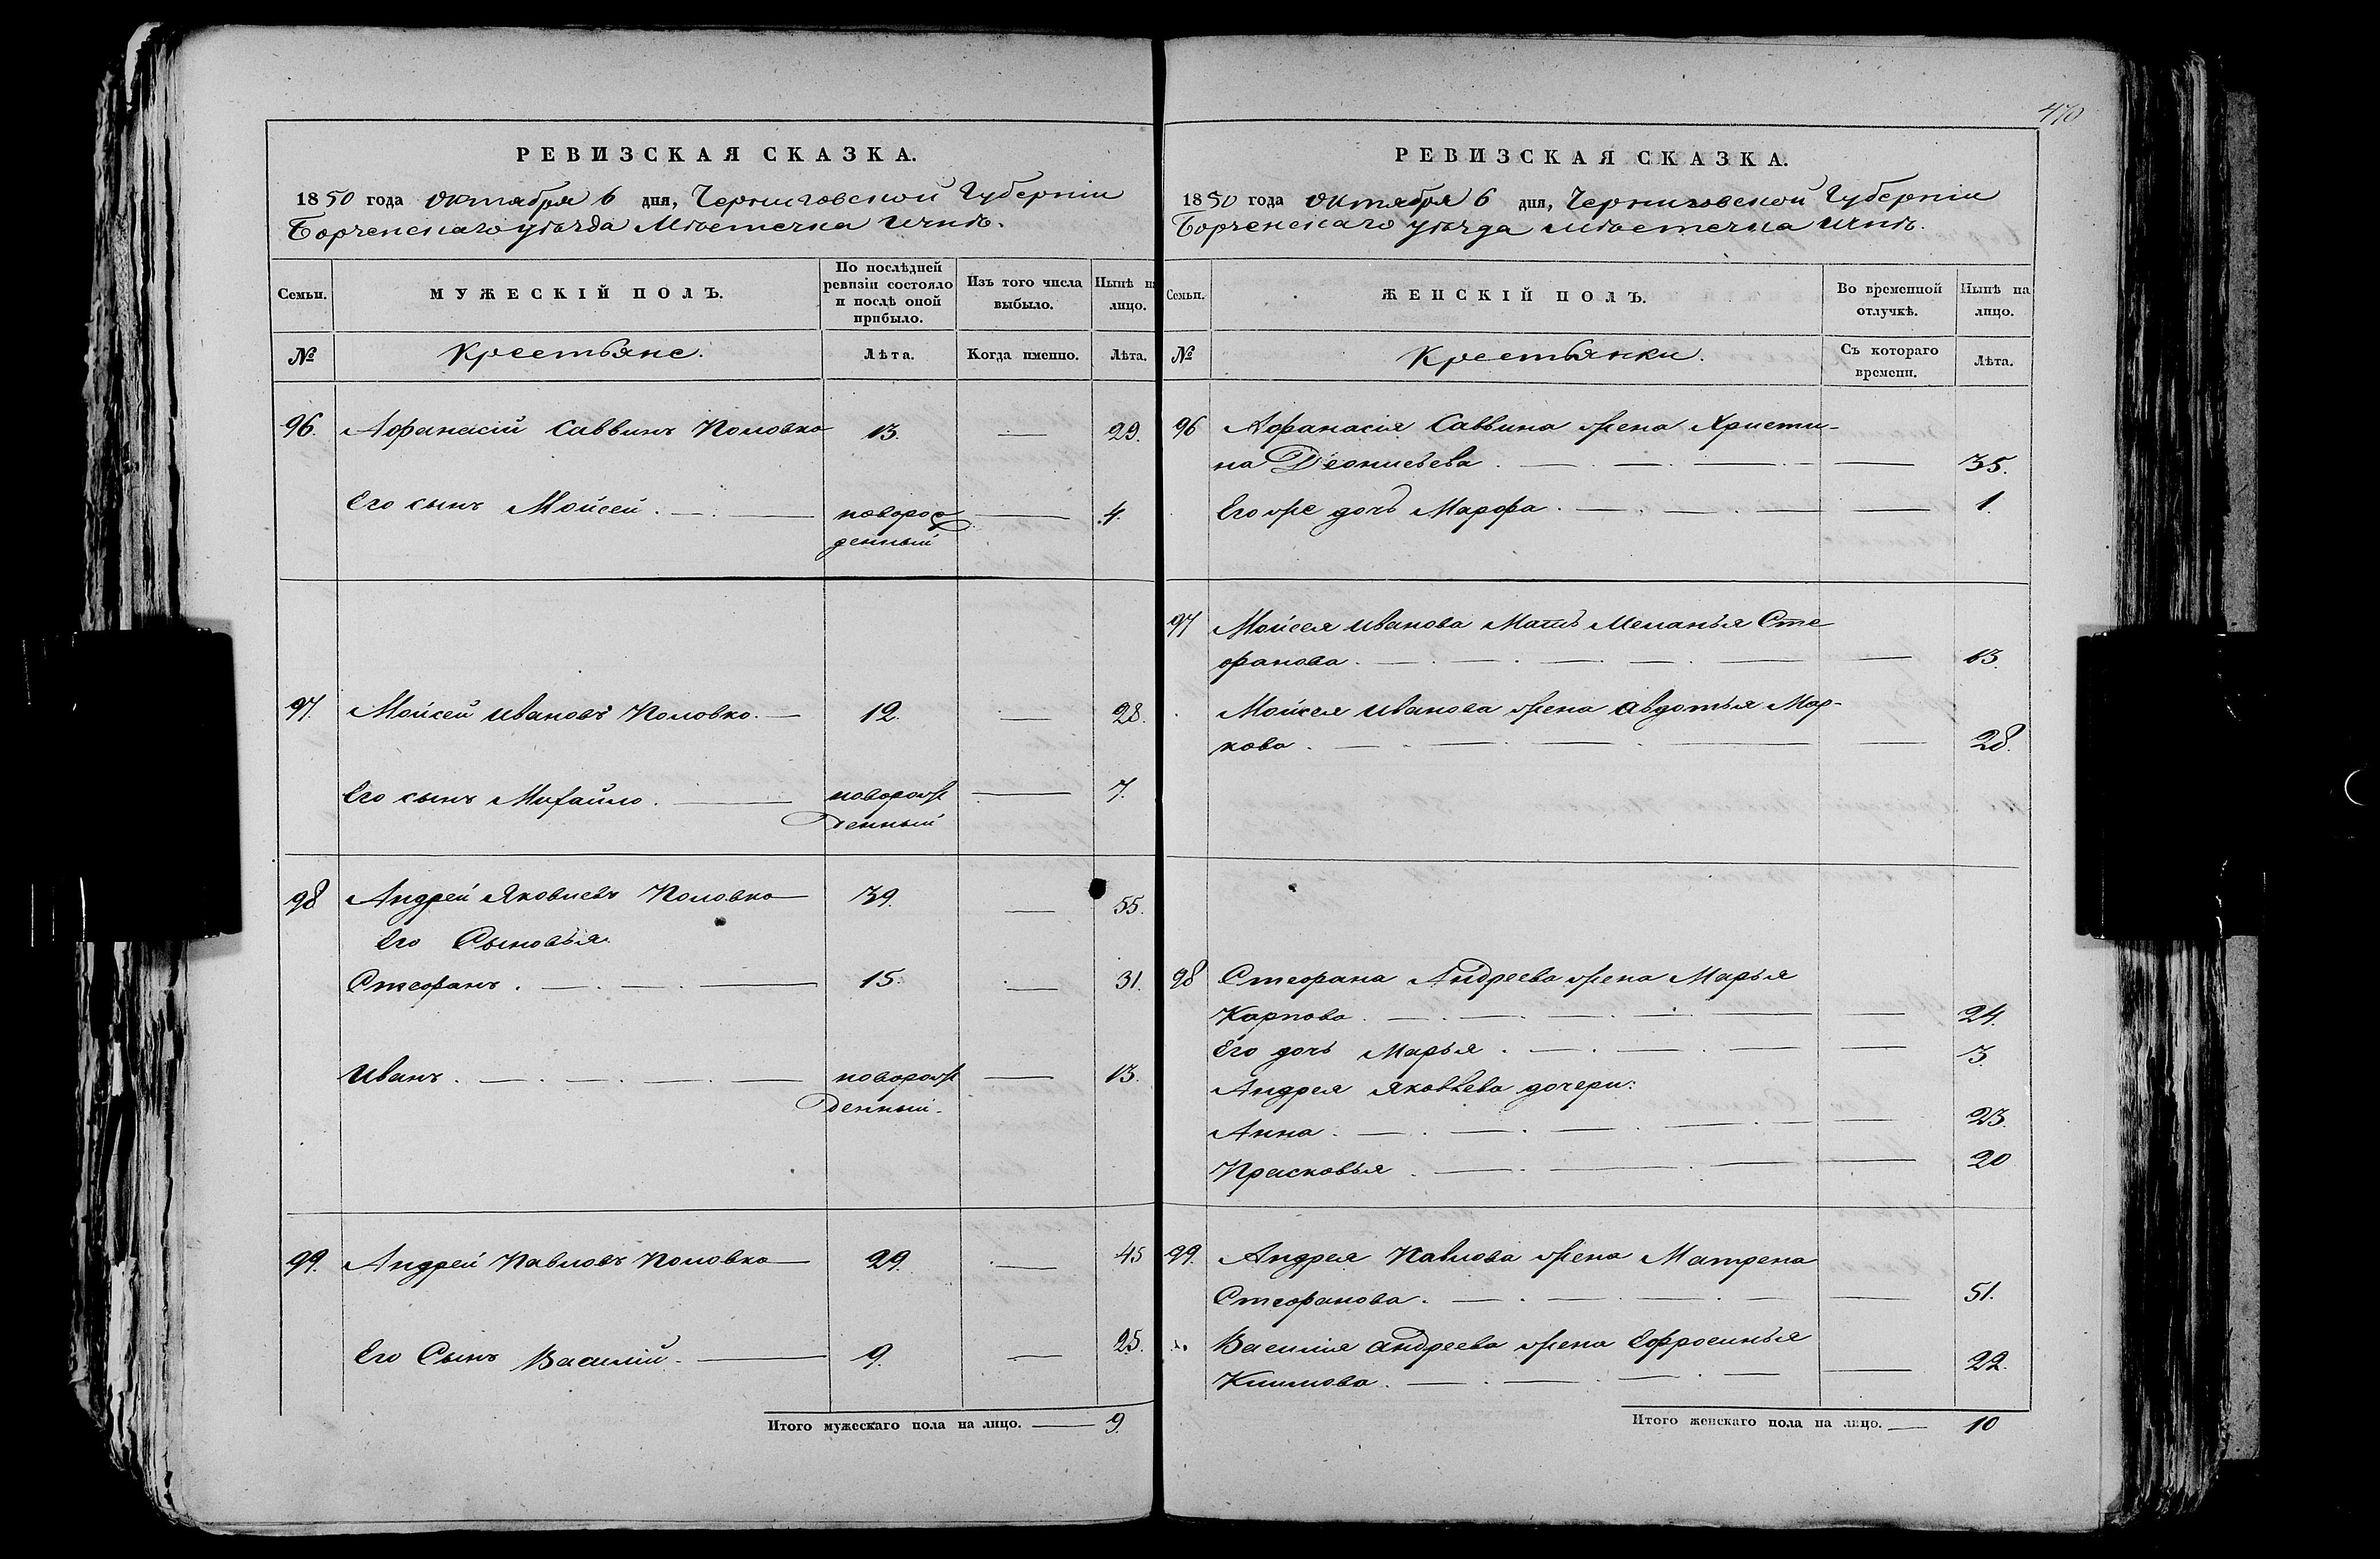 470
РЕВИЗСКАЯ СКАЗКА.
1850 года Октября 6 дня, Черниговской Губерніи
Борзенскаго уѣзда Мѣстечка Ични.
Семьи. МУЖЕСКІЙ ПОЛЪ. По послѣдней ревизіи состояло и послѣ оной прибыло. Изъ того числа выбыло. Нынѣ н лицо.
№ Крестьяне. Лѣта. Когда именно. Лѣта.
96. Афанасій Саввинъ Половко 13. — 29.
Его сынъ Мойсей. — новорож — 4.
денный
97. Мойсей Ивановъ Половко. — 12. — 28.
Его сынъ Михайло. — новорож — 7.
денный
98 Андрей Яковлевъ Половко 39. — 55.
Его Сыновья
Стефанъ. — 15. — 31.
Иванъ. — новорож — 13.
денный.
99. Андрей Павловъ Половко 29. — 45
Его Сынъ Василій. — 9. — 25.
Итого мужескаго пола на лицо. — 9.
РЕВИЗСКАЯ СКАЗКА.
1850 года Октября 6 дня, Черниговской Губерніи
Борзенскаго уѣзда Мѣстечка Ични.
Семьи. ЖЕНСКІЙ ПОЛЪ. Во временной отлучкѣ. Нынѣ на лицо.
№ Крестьянки. Съ котораго времени. Лѣта.
96 Афанасія Саввина жена Христи-
на Деонисьева. — 35.
Его же дочь Марфа. — 1.
97 Мойсея Иванова Мать Меланья Сте
фанова. — 63.
Мойсея Иванова жена Авдотья Мар-
кова. — 28.
98 Стефана Андреева жена Марья
Карпова. — 24.
Его дочь Марья. — 3.
Андрея Яковлева дочери:
Анна. — 23.
Прасковья. — 20
99. Андрея Павлова жена Матрена
Стефанова. — 51.
Василія Андреева жена Ефросинья
Климова. — 22.
Итого женскаго пола на лицо. — 10